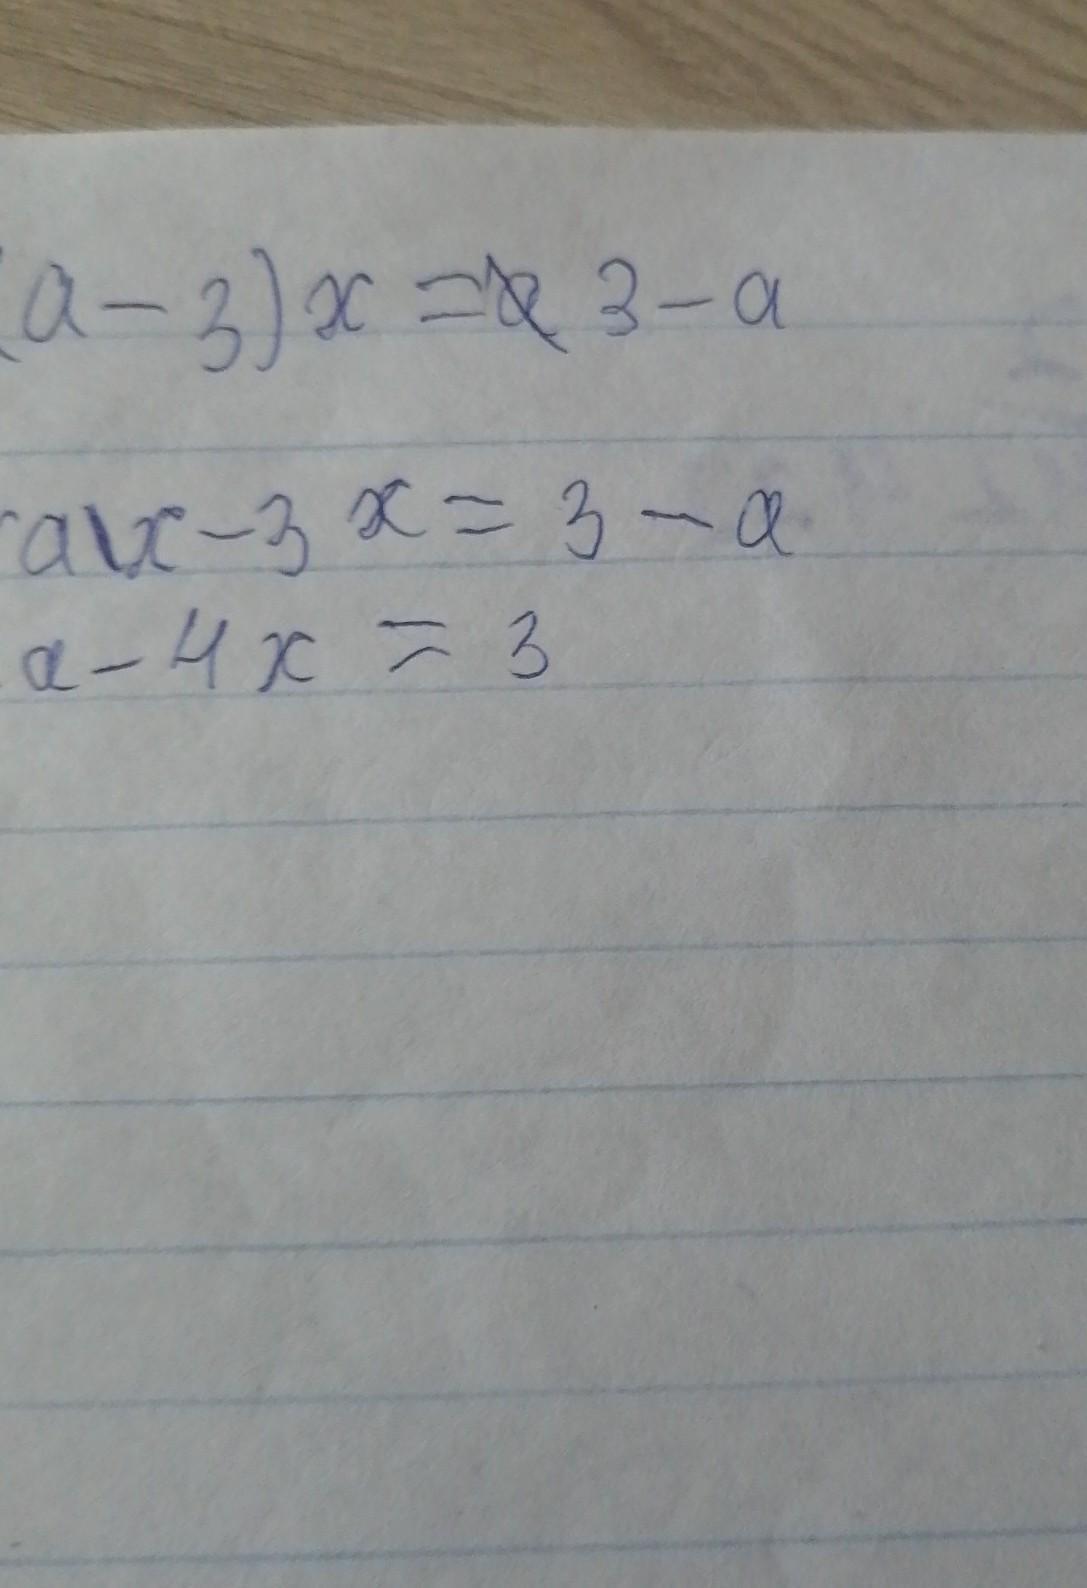 (a-3)x = 3-a
ax-3x=3-a
a-4x=3